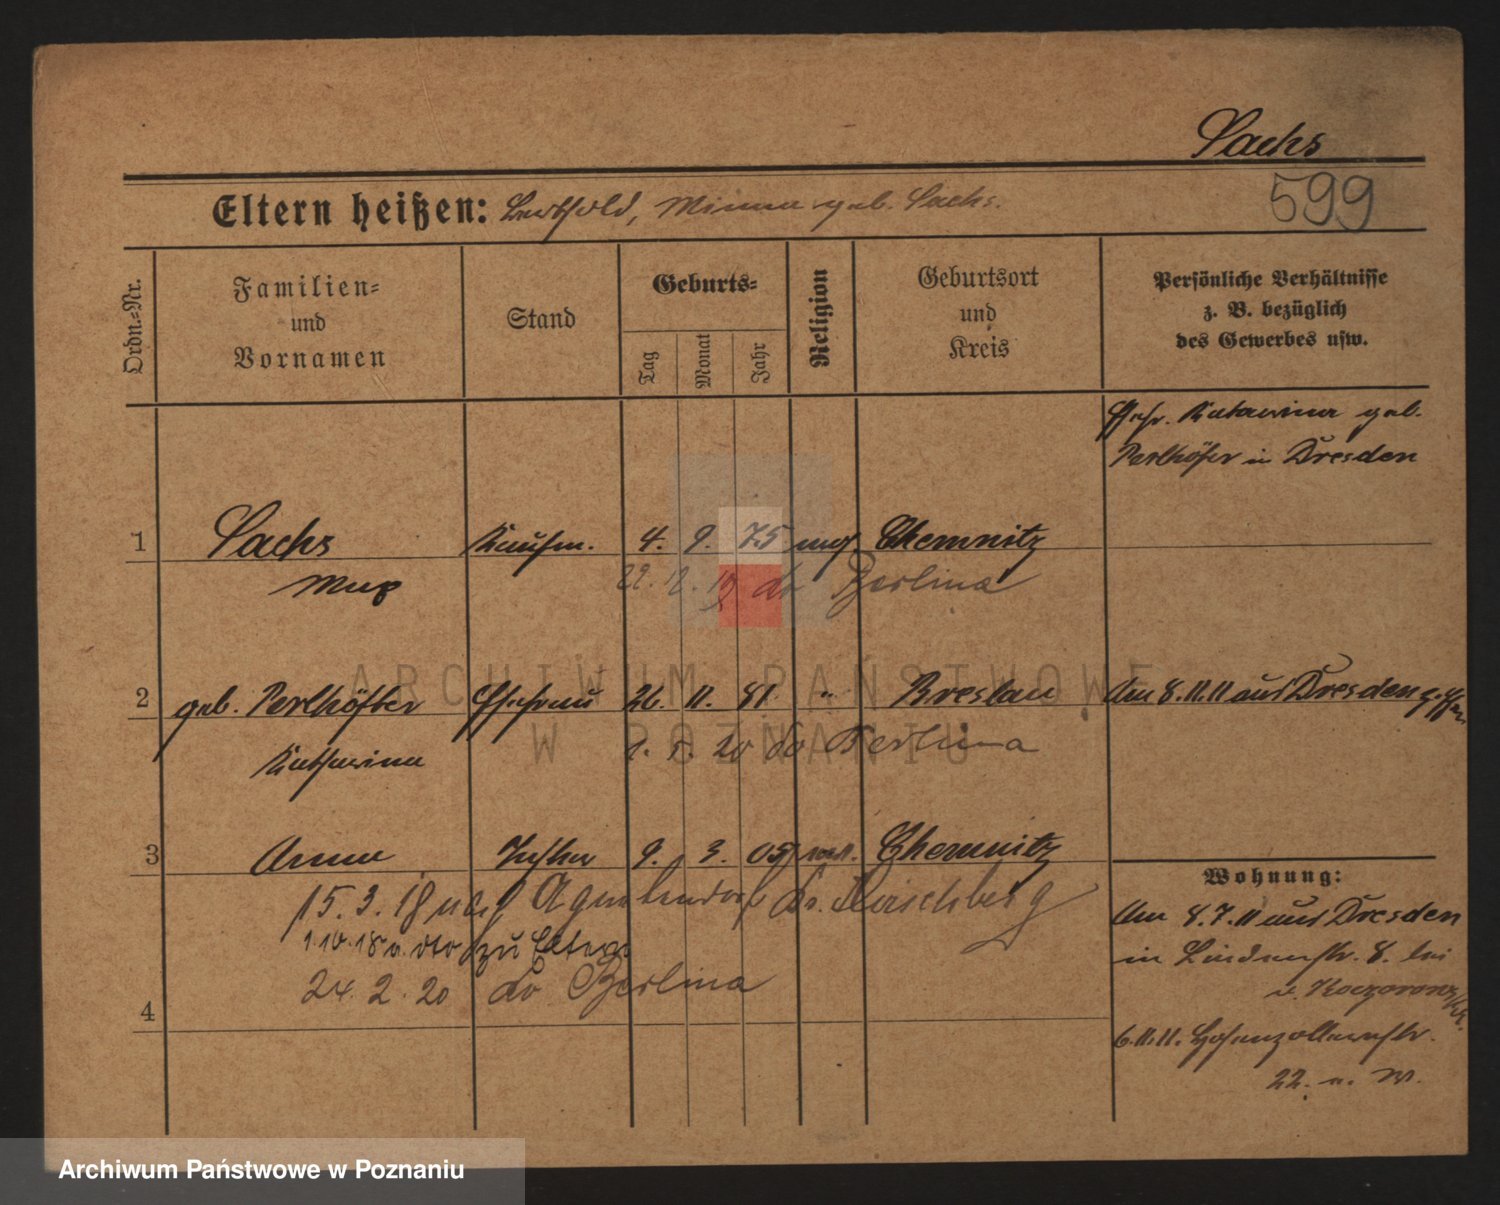 Sachs
599
Eltern heißen: Berthold, Minna geb. Sachs.
Ordn.-Nr.
Familien-
und
Vornamen
Stand
Geburts-
Tag
Monat
Jahr
Religion
Geburtsort
und
Kreis
Persönliche Verhältnisse
z. B. bezüglich
des Gewerbes usw.
Ehefr. Katarina geb.
Perlhöfter in Dresden
1 Sachs Kaufm. 4. 9. 75 mos. Chemnitz
Max
22. 12. 19 do Berlina
2 geb. Perlhöfter Ehefrau 26. 11. 81 " Breslau
Am 8.11.11 aus Dresden
Katharina
20 do Berlina
3 Anna Tochter 9. 3. 05 Chemnitz
15. 3. 18 nach Agnetendorf Kr. Hirschberg
1.10.18 v. dto zu Eltern
24. 2. 20 do Berlina
4
Wohnung:
Am 8.7.11 aus Dresden
in Lindenstr. 8. bei
v. Koczorowski
6.11.11. Hohenzollernstr.
22. n. W.
ARCHIWUM PAŃSTWOWE
W POZNANIU
Archiwum Państwowe w Poznaniu